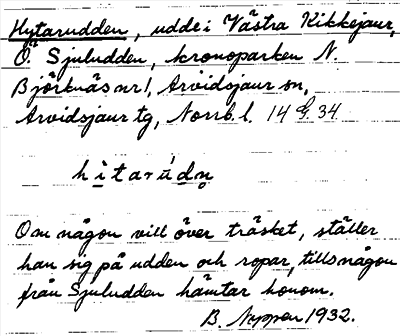 Hytarudden, udde i Västra Kikkejaur,
Ö. Sjuludden, kronoparken N.
Björknäs nr 1, Arvidsjaur sn,
Arvidsjaur tg, Norrb. l. 14 G. 34
hi̲tarúdn̥
Om någon vill över träsket, ställer
han sig på udden och ropar, tills någon
från Sjuludden hämtar honom.
B. 1932.